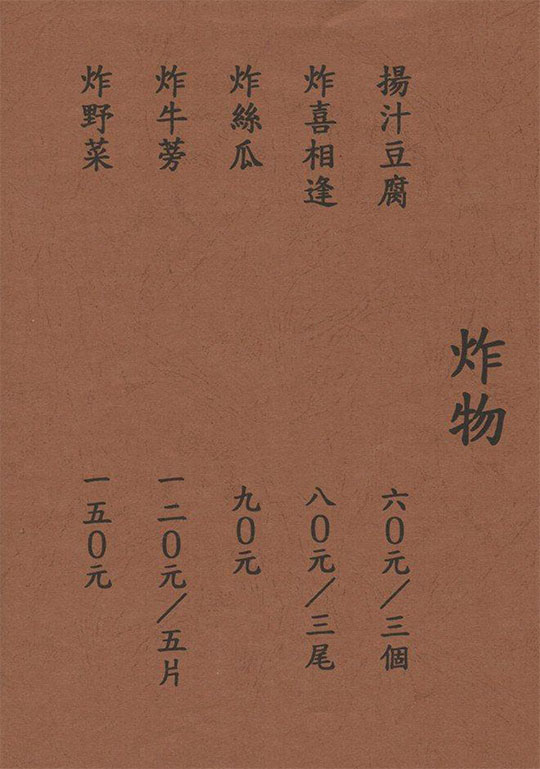 炸物
揚汁豆腐 六0元/三個
炸喜相逢 八0元/三尾
炸絲瓜 九0元
炸牛蒡 一二0元/五片
炸野菜 一五0元